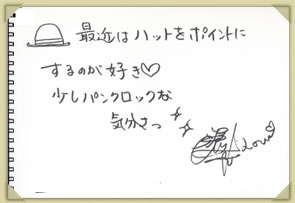 最近はハットをポイントに
するのが好き♡
少しパンクロックな
気分さっ